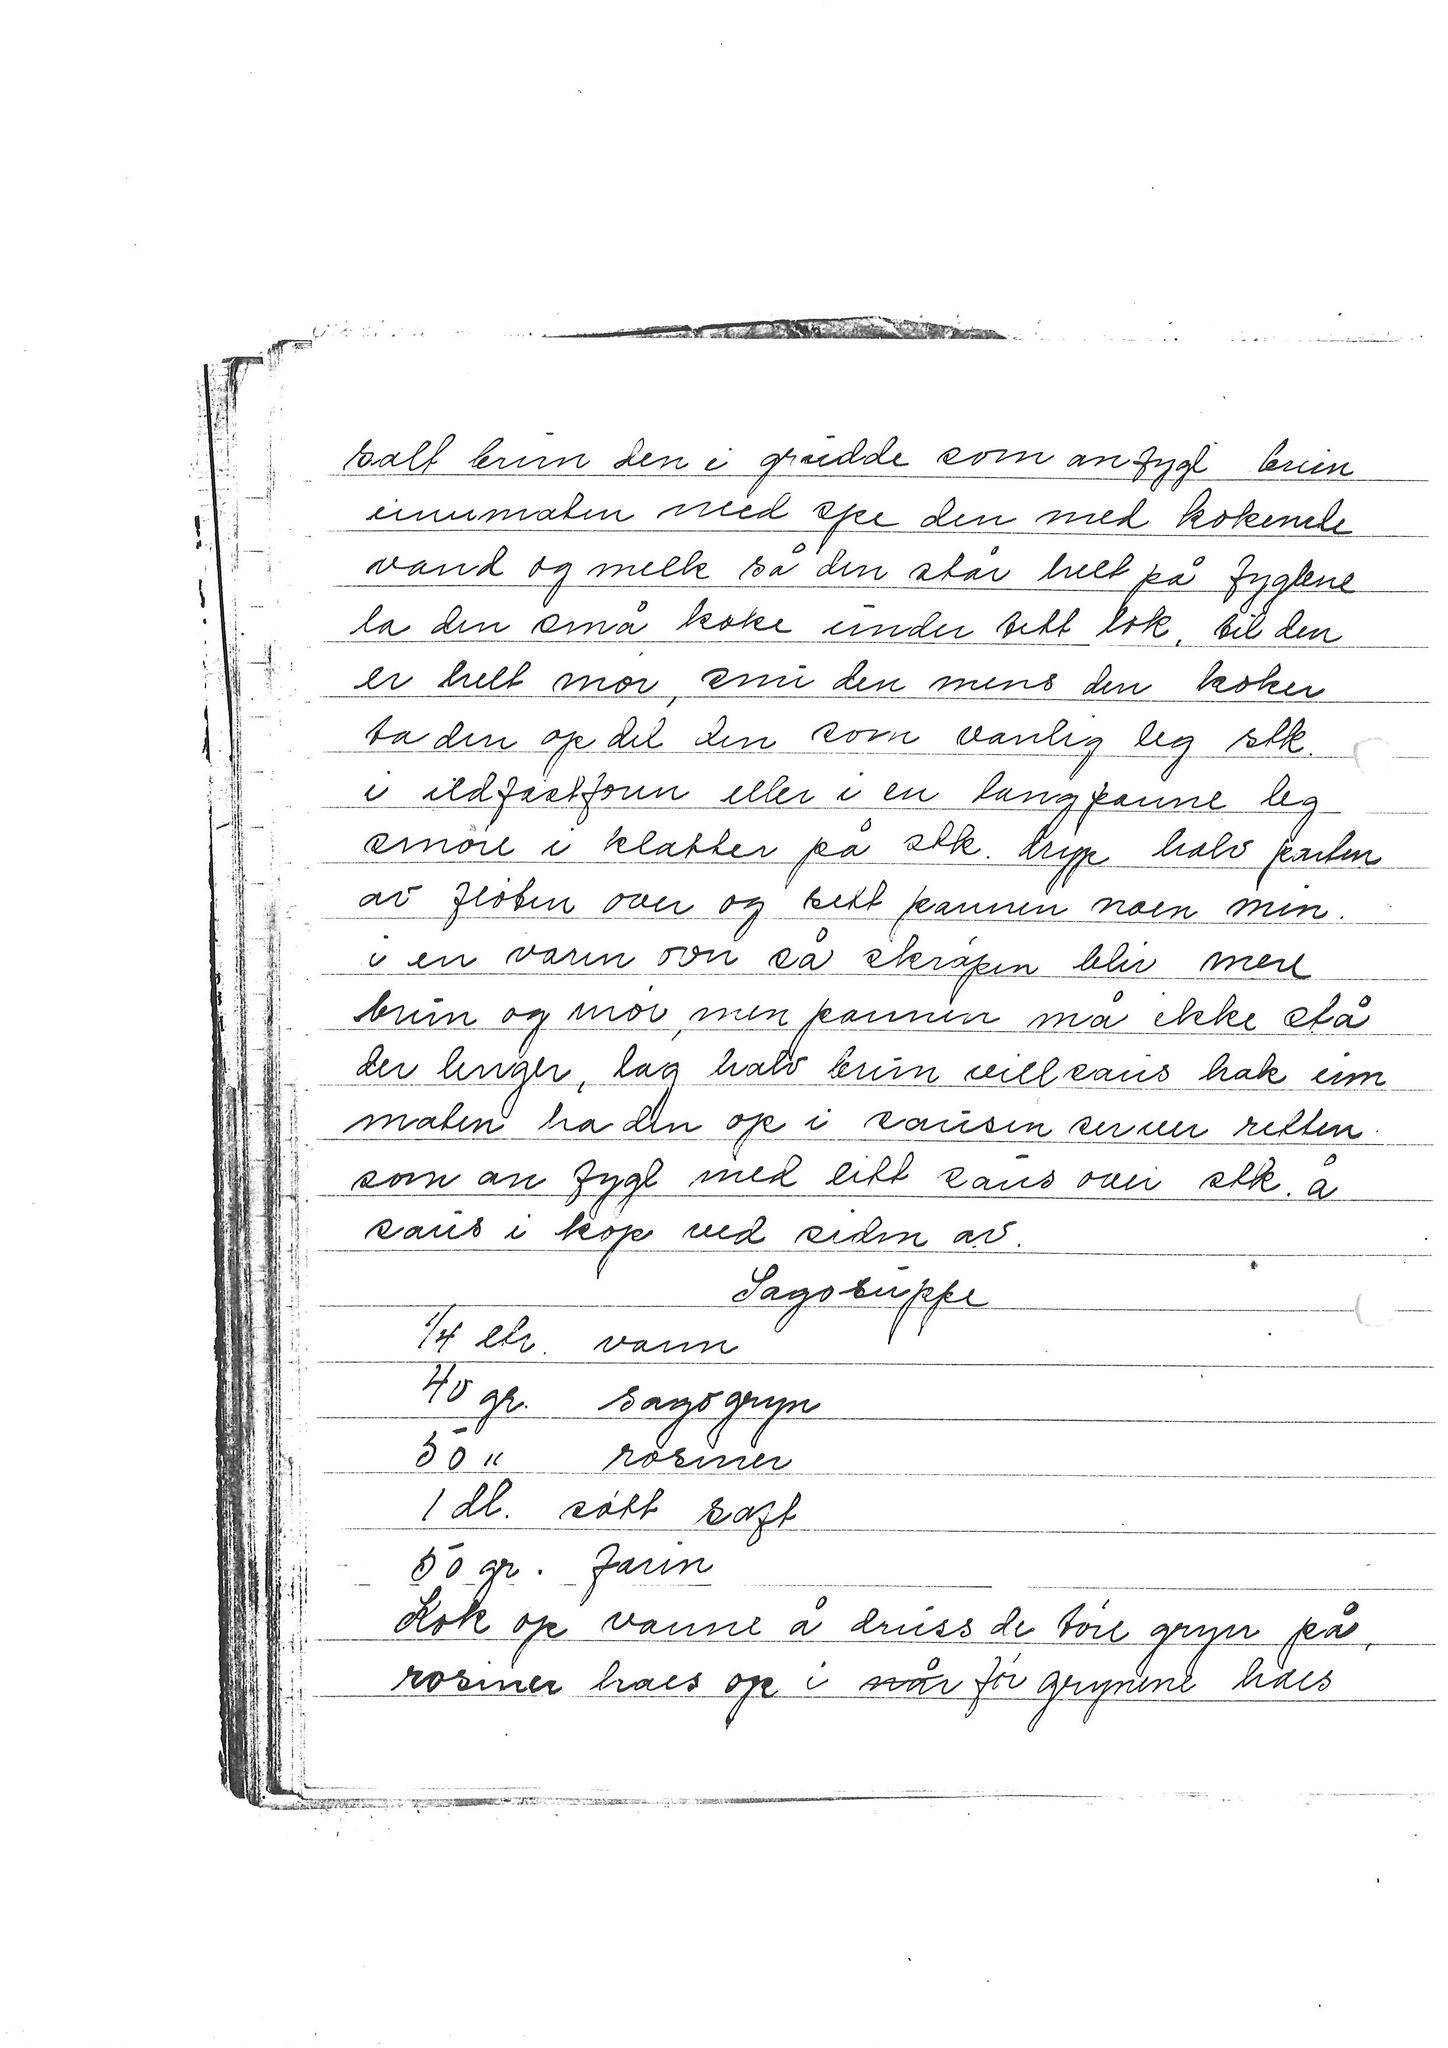 salt brun den i grüdde som an fygl brun
innmaten med spe den med kokende
vand og melk så den står helt på fyglene
la den små koke under tett lok, til den
er helt mör, snu den mens den koker
ta den op del den som vanlig leg stk.
i ildfastform eller i en langpanne leg
smöre i klatter på stk. dryp halv parten
av flöten over og sett pannen noen min.
i en varm ovn så skråpen blir mere
brun og mör, men pannen må ikke stå
der lenger, lag halv brun villsaus hak inn
maten ha den op i sausen server retten
som an fygl med litt saus over stk. å
saus i kop ved siden av.
Sagosuppe
1/4 ltr. vann
40 gr. sagogryn
50 " rosiner
1 dl. sött saft
50 gr. farin
Kok op vanne å druss de töre gryn på,
rosiner haes op i når för grynene haes